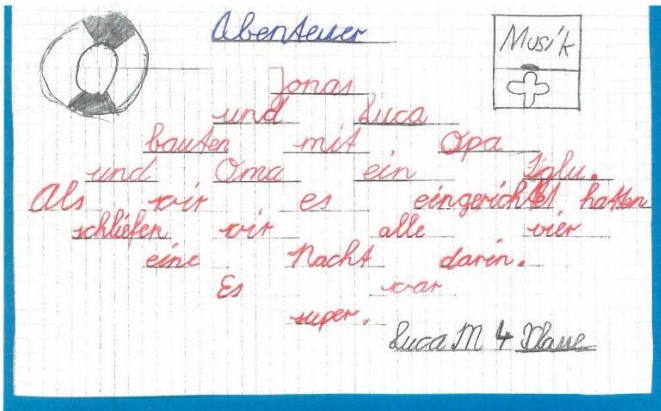 Abenteuer
Musik
Jonas
und Luca
bauten mit Opa
und Oma ein Iglu.
Als wir es eingerichtet hatten
schliefen wir alle vier
eine Nacht darin.
Es war
super.
Luca M 4 Klasse